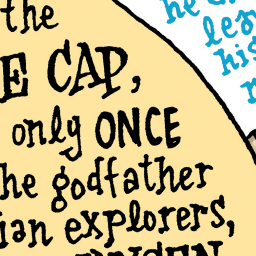 the
E CAP,
only ONCE
he godfather
ian explorers,
he
his